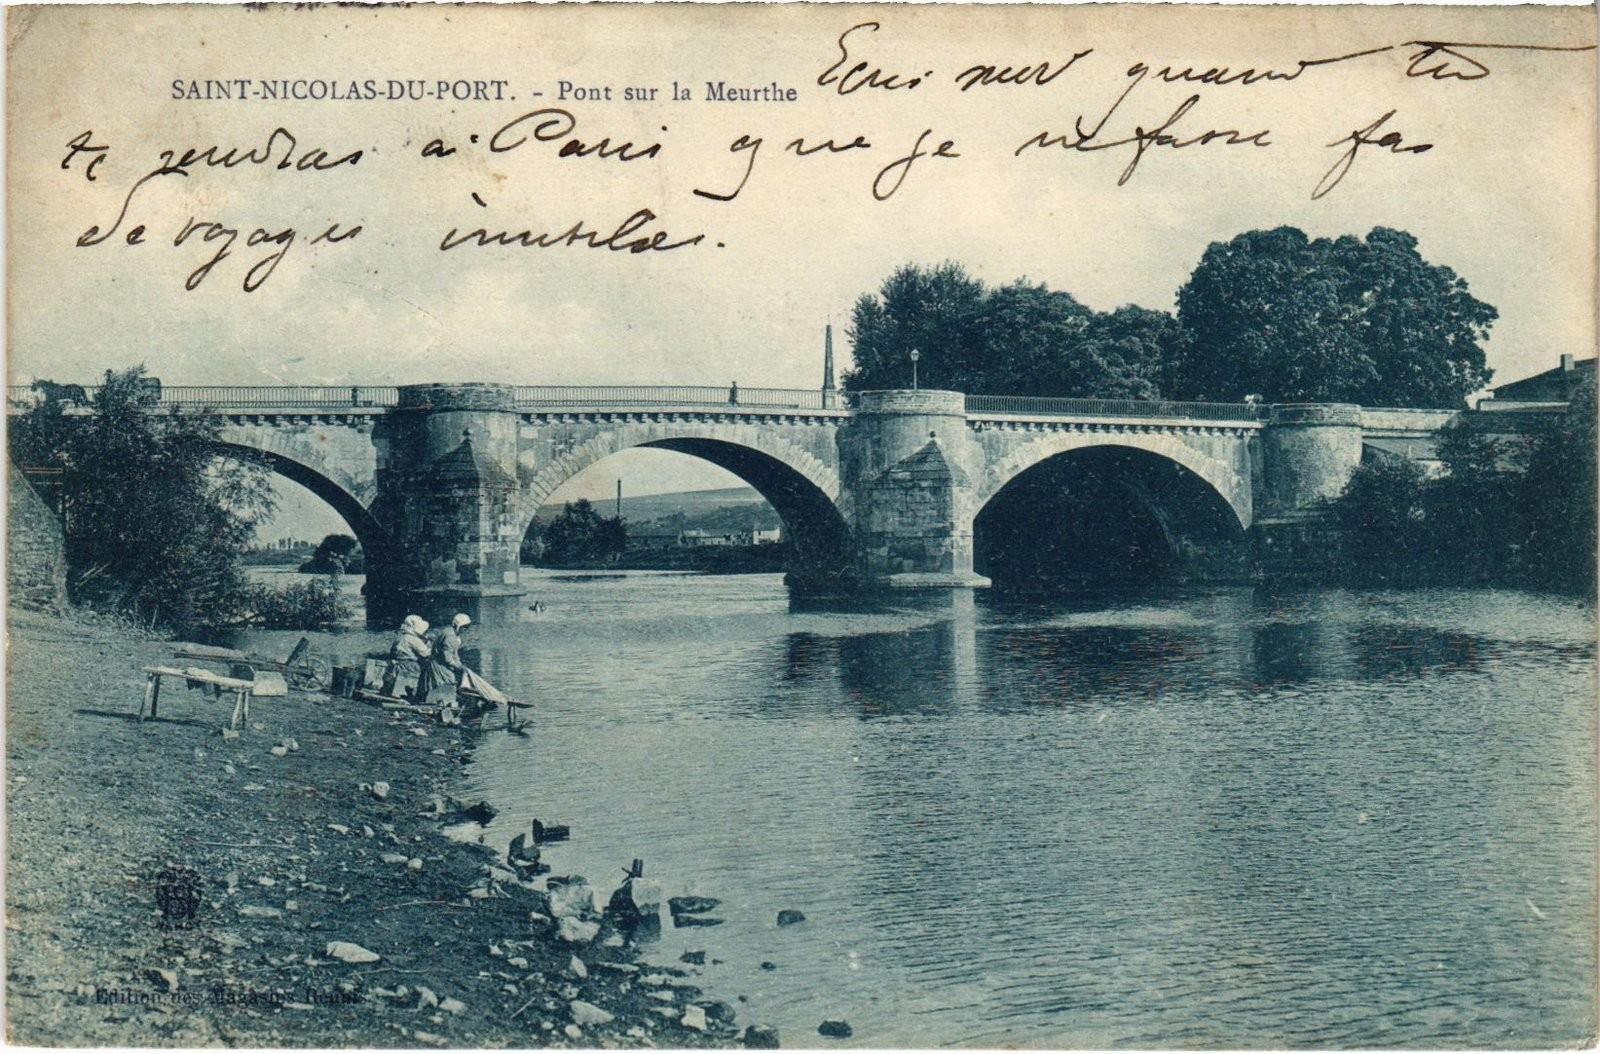 SAINT-NICOLAS-DU-PORT. - Pont sur la Meurthe
Ecris moi quand tu
te rendras à Paris que je ne fasse pas
de voyages inutiles.
Edition des Magasins Réunis